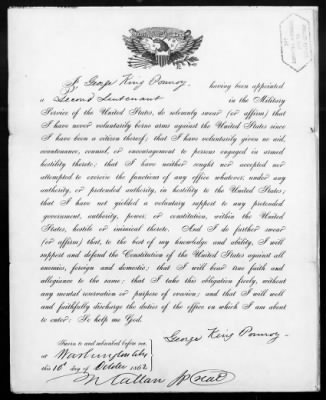 I, George King Pomroy, having been appointed
a Second Lieutenant in the Military
Service of the United States, do solemnly swear (or affirm) that
I have never voluntarily borne arms against the United States since
I have been a citizen thereof; that I have voluntarily given no aid,
countenance, counsel, or encouragement to persons engaged in armed
hostility thereto; that I have neither sought nor accepted nor
attempted to exercise the functions of any office whatever, under any
authority, or pretended authority, in hostility to the United States;
that I have not yielded a voluntary support to any pretended
government, authority, power, or constitution, within the United
States, hostile or inimical thereto. And I do further swear
(or affirm) that, to the best of my knowledge and ability, I will
support and defend the Constitution of the United States against all
enemies, foreign and domestic; that I will bear true faith and
allegiance to the same; that I take this obligation freely, without
any mental reservation or purpose of evasion; and that I will well
and faithfully discharge the duties of the office on which I am about
to enter: So help me God.
George King Pomroy
Sworn to and subscribed before me
at Washington City
this 10th day of October 1862
Callan